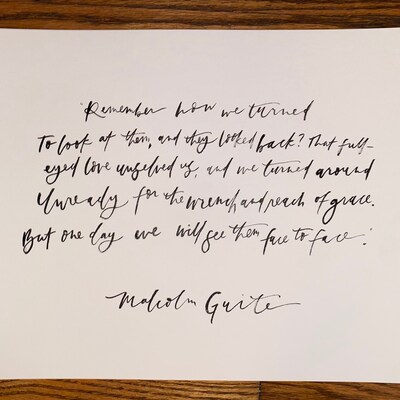 "Remember how we turned
To look at them, and they looked back? That full-
eyed love unselved us, and we turned around
Unready for the wrench and reach of grace.
But one day we will see them face to face."
Malcolm Guite